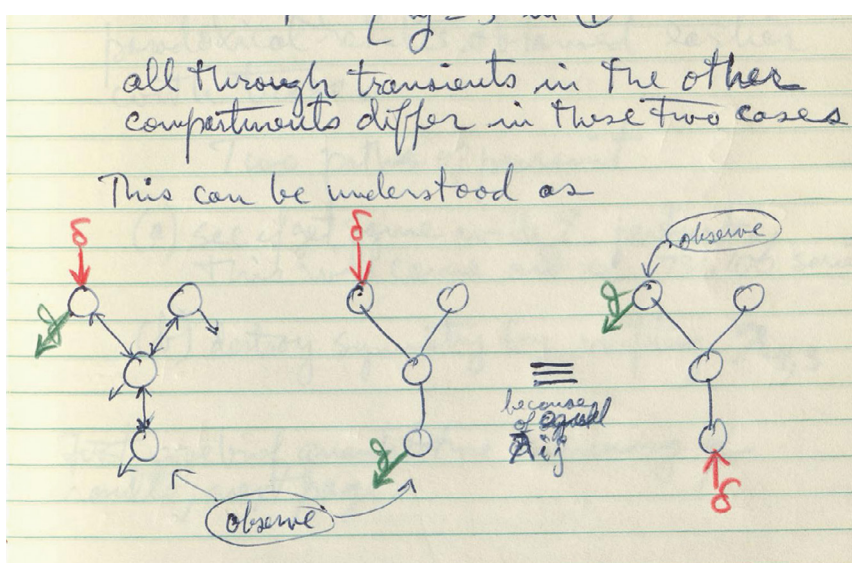 all through transients in the other
compartments differ in these two cases
This can be understood as
δ
δ
observe
g
g
≡
because
of equal
λij
g
δ
observe